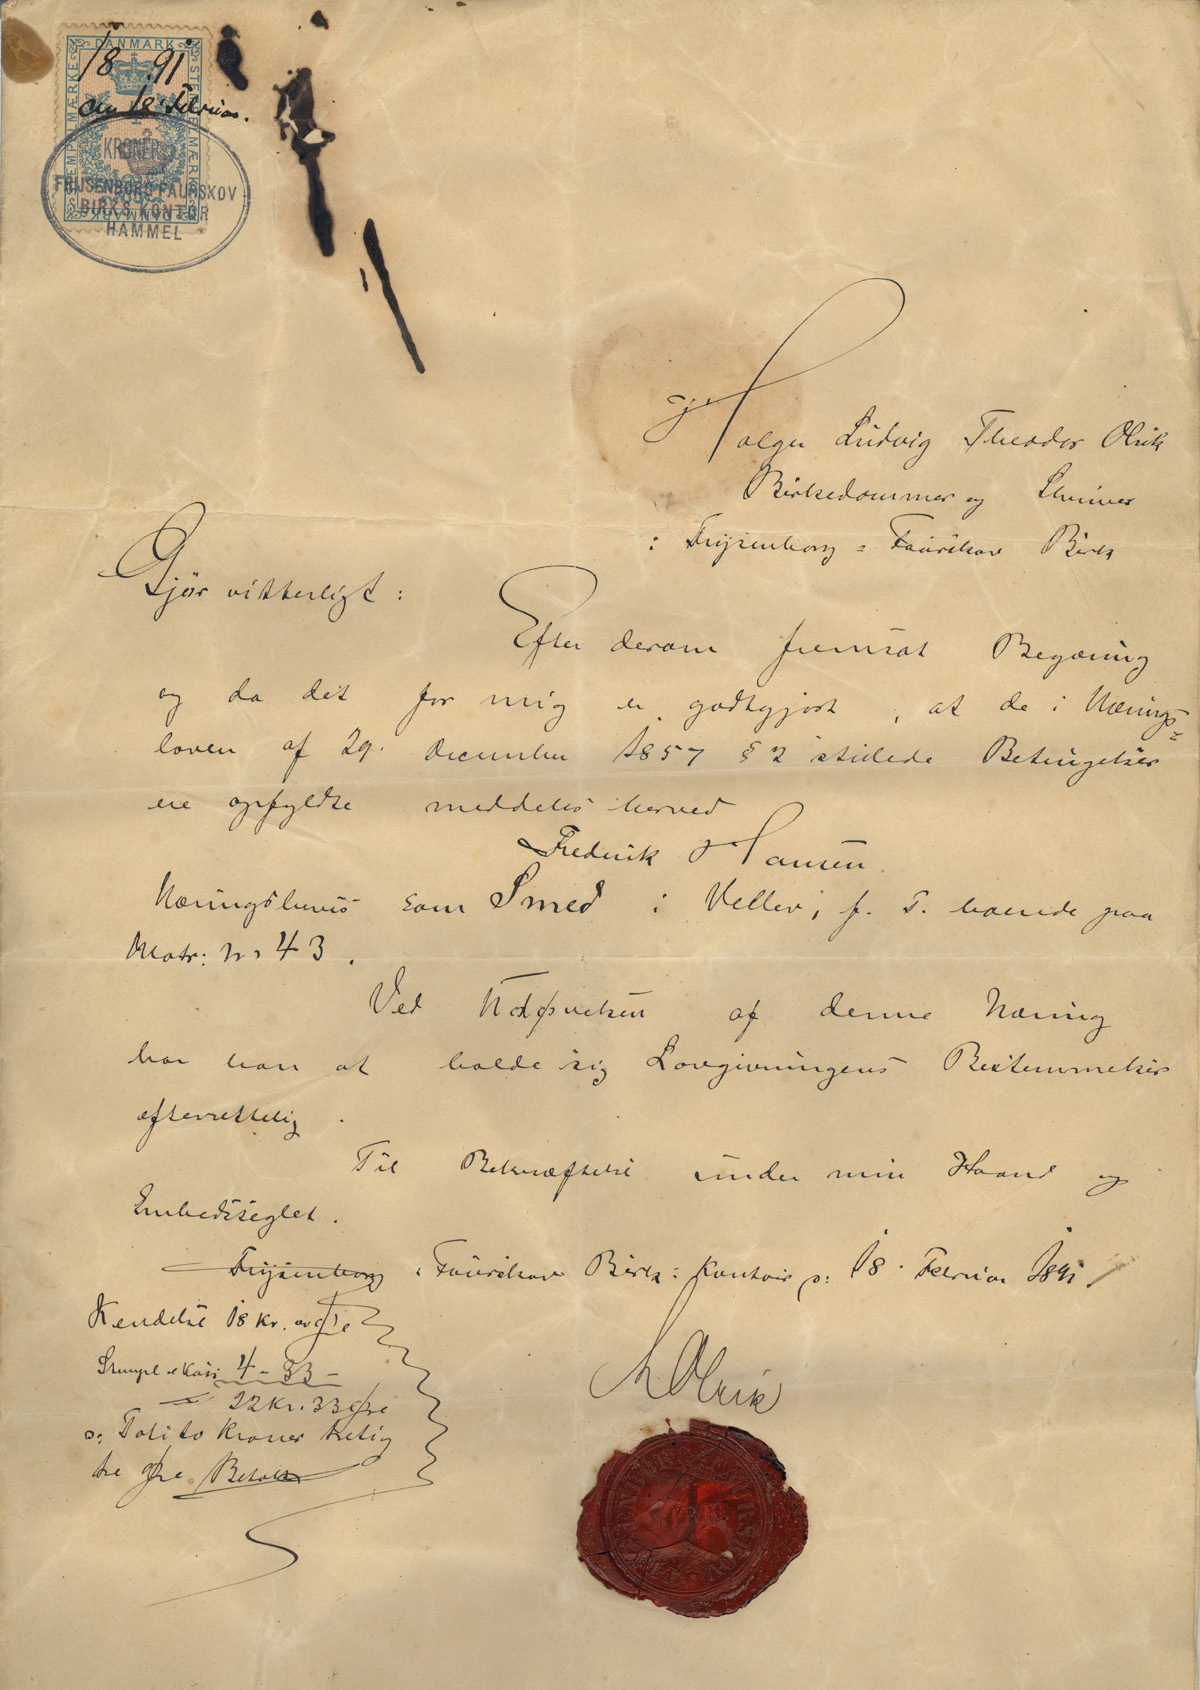 DANMARK
STEMPELMÆRKE
18 91
den 18 Februar.
KRONER
FRIJSENBORG FAURSKOV
BIRKS KONTOR
HAMMEL
Jeg Holger Ludvig Theodor Olrik
Birkedommer og Skriver
i Frijsenborg = Faurskov Birk
Gjør vitterligt :
Efter derom fremsat Begæring
og da det for mig er godtgjort, at de i Nærings=
loven af 29. December 1857 § 2 stillede Betingelser
ere opfyldte meddeles herved
Frederik Hansen
Næringsbevis som Smed i Vellev, p. T. boende paa
Matr: No 43.
Ved Udøvelsen af denne Næring
har han at holde sig Lovgivningens Bestemmelser
efterrettelig.
Til Bekræftelse under min Haand og
Embedsseglet.
Frijsenborg = Faurskov Birks Kontoir, d: 18. Februar 1891
Kendelse 18 Kr. " Øre
Stempel 4 - 33 -
22 Kr. 33 Øre
er: Toti to Kroner tretig
tre Øre. Betalt
Olrik